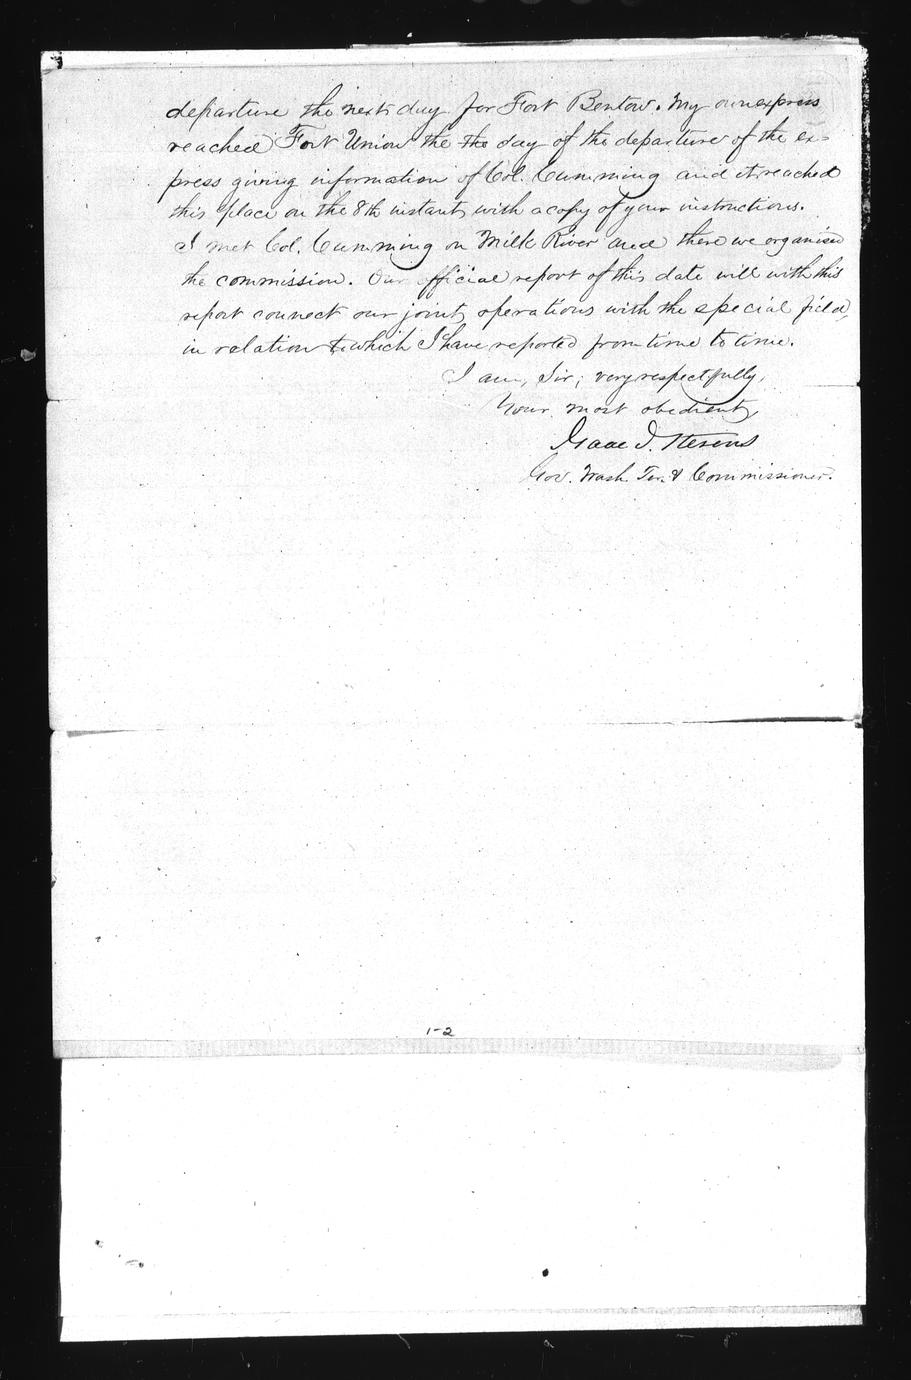 departure the next day for Fort Benton. My own express
reached Fort Union the the day of the departure of the ex=
press giving information of Col. Cumming and it reached
this place on the 8th instant, with a copy of your instructions.
I met Col. Cumming on Milk River and there we organized
the commission. Our official report of this date will with this
report connect our joint operations with the special field,
in relation to which I have reported from time to time.
I am, Sir; very respectfully,
Your most obedient,
Isaac I. Stevens
Gov. Wash. Ter. & Commissioner.
1-2